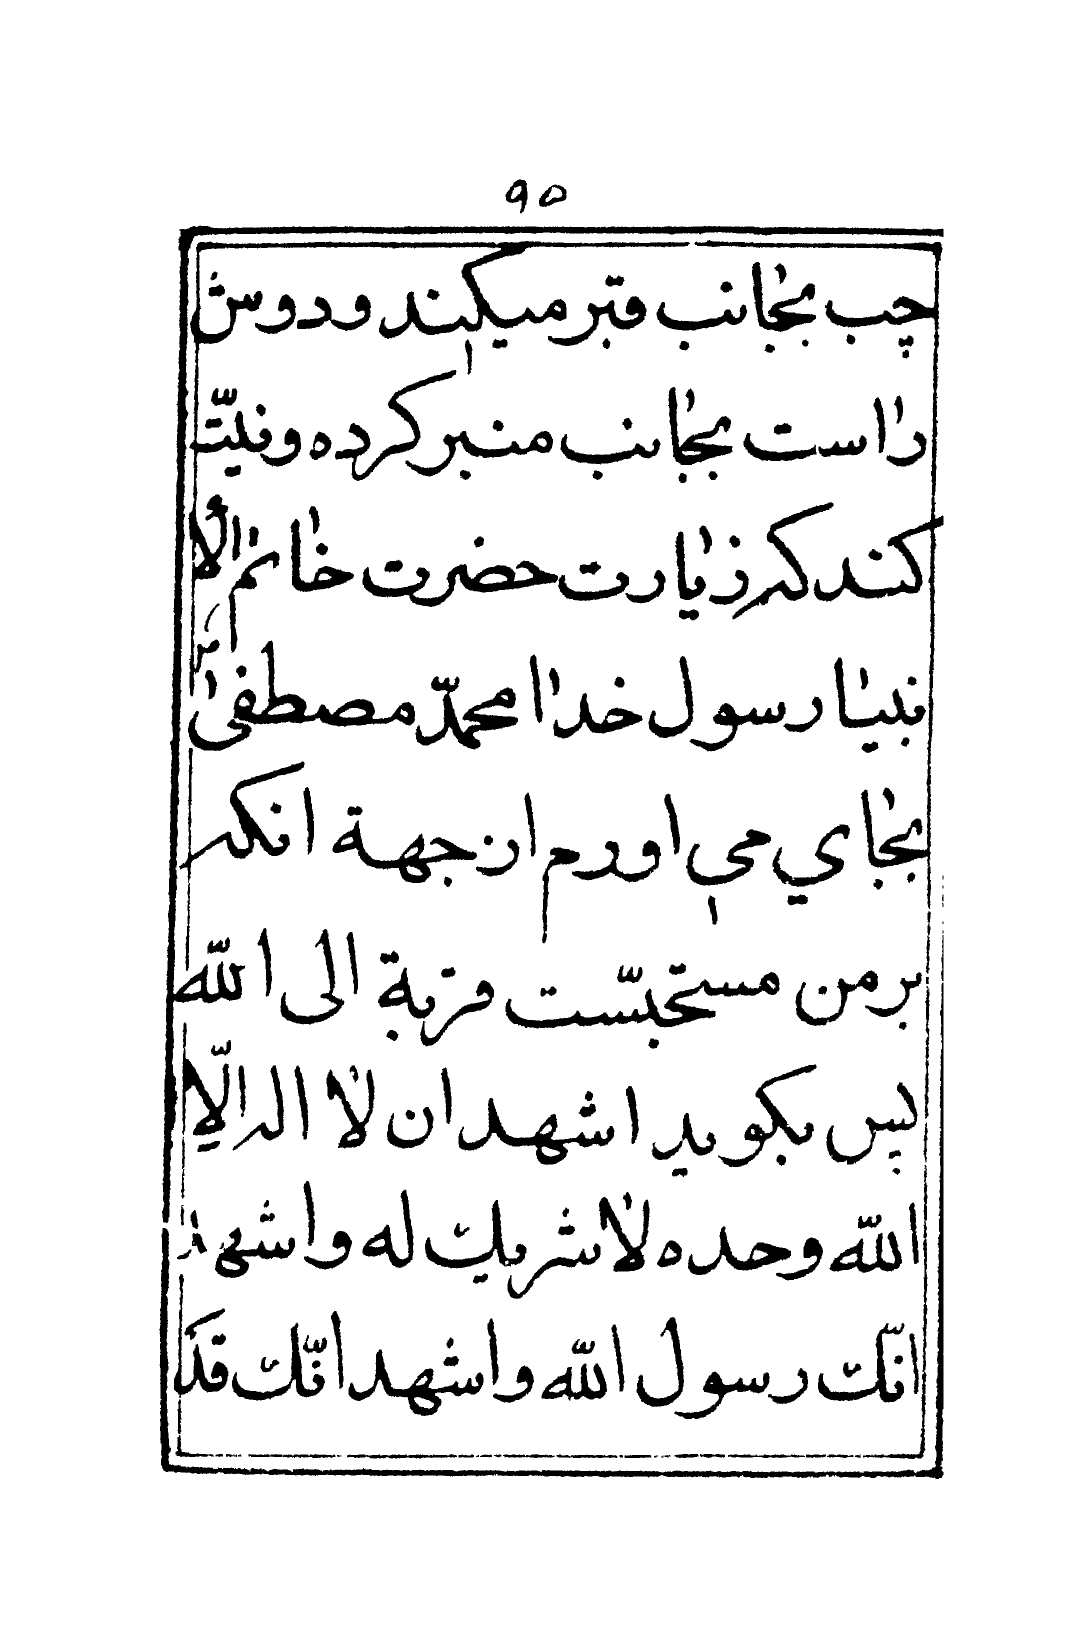 ۹۵
چپ بجانب قبر میکند و دوش
راست بجانب منبر کرده و نیّت
کند که زیارت حضرت خاتم الأ
نبیا رسول خدا محمدّ مصطفیٰ ص
بجاي می اورم از جهة انکه
بر من مستحبّست قربة الی اللّه
پس بکوید اشهد ان لا اله الّا
اللّه وحده لا شریك له و اشهد
انّك رسول اللّه و اشهد انّك قد